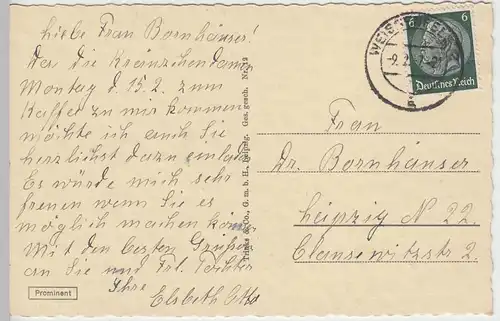 Liebe Frau Bornhäuser!
Da die Kränzchendamen
Montag d. 15.2. zum
Kaffee zu mir kommen
möchte ich auch Sie
herzlichst dazu einladen.
Es würde mich sehr
freuen wenn Sie es
möglich machen können
Mit den besten Grüßen
an Sie und Frl. Tochter
Ihre
Elsbeth
Prominent
Trinks & Co., G. m. b. H., Leipzig. Ges. gesch.
6 6
Deutsches Reich
Frau
Dr. Bornhäuser
Leipzig N 22
Clausewitzstr 2.